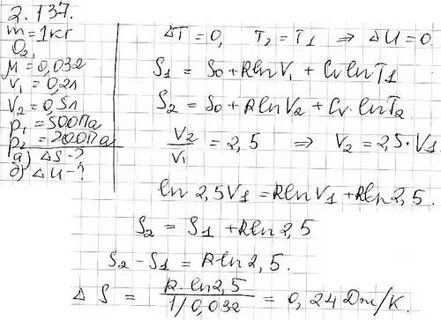 2.137.
m = 1 кг
O₂
μ = 0,032
V₁ = 0,2 л
V₂ = 0,5 л
p₁ = 500 Па
p₂ = 200 Па
а) ΔS - ?
б) ΔU - ?
ΔT = 0, T₂ = T₁ ⇒ ΔU = 0
S₁ = S₀ + R ln V₁ + Cᵥ ln T₁
S₂ = S₀ + R ln V₂ + Cᵥ · ln T₂
V₂/V₁ = 2,5 ⇒ V₂ = 2,5 · V₁
ln 2,5V₁ = R ln V₁ + R ln 2,5
S₂ = S₁ + R ln 2,5
S₂ - S₁ = R ln 2,5.
ΔS = R · ln 2,5 / 1/0,032 = 0,24 Дж/К.